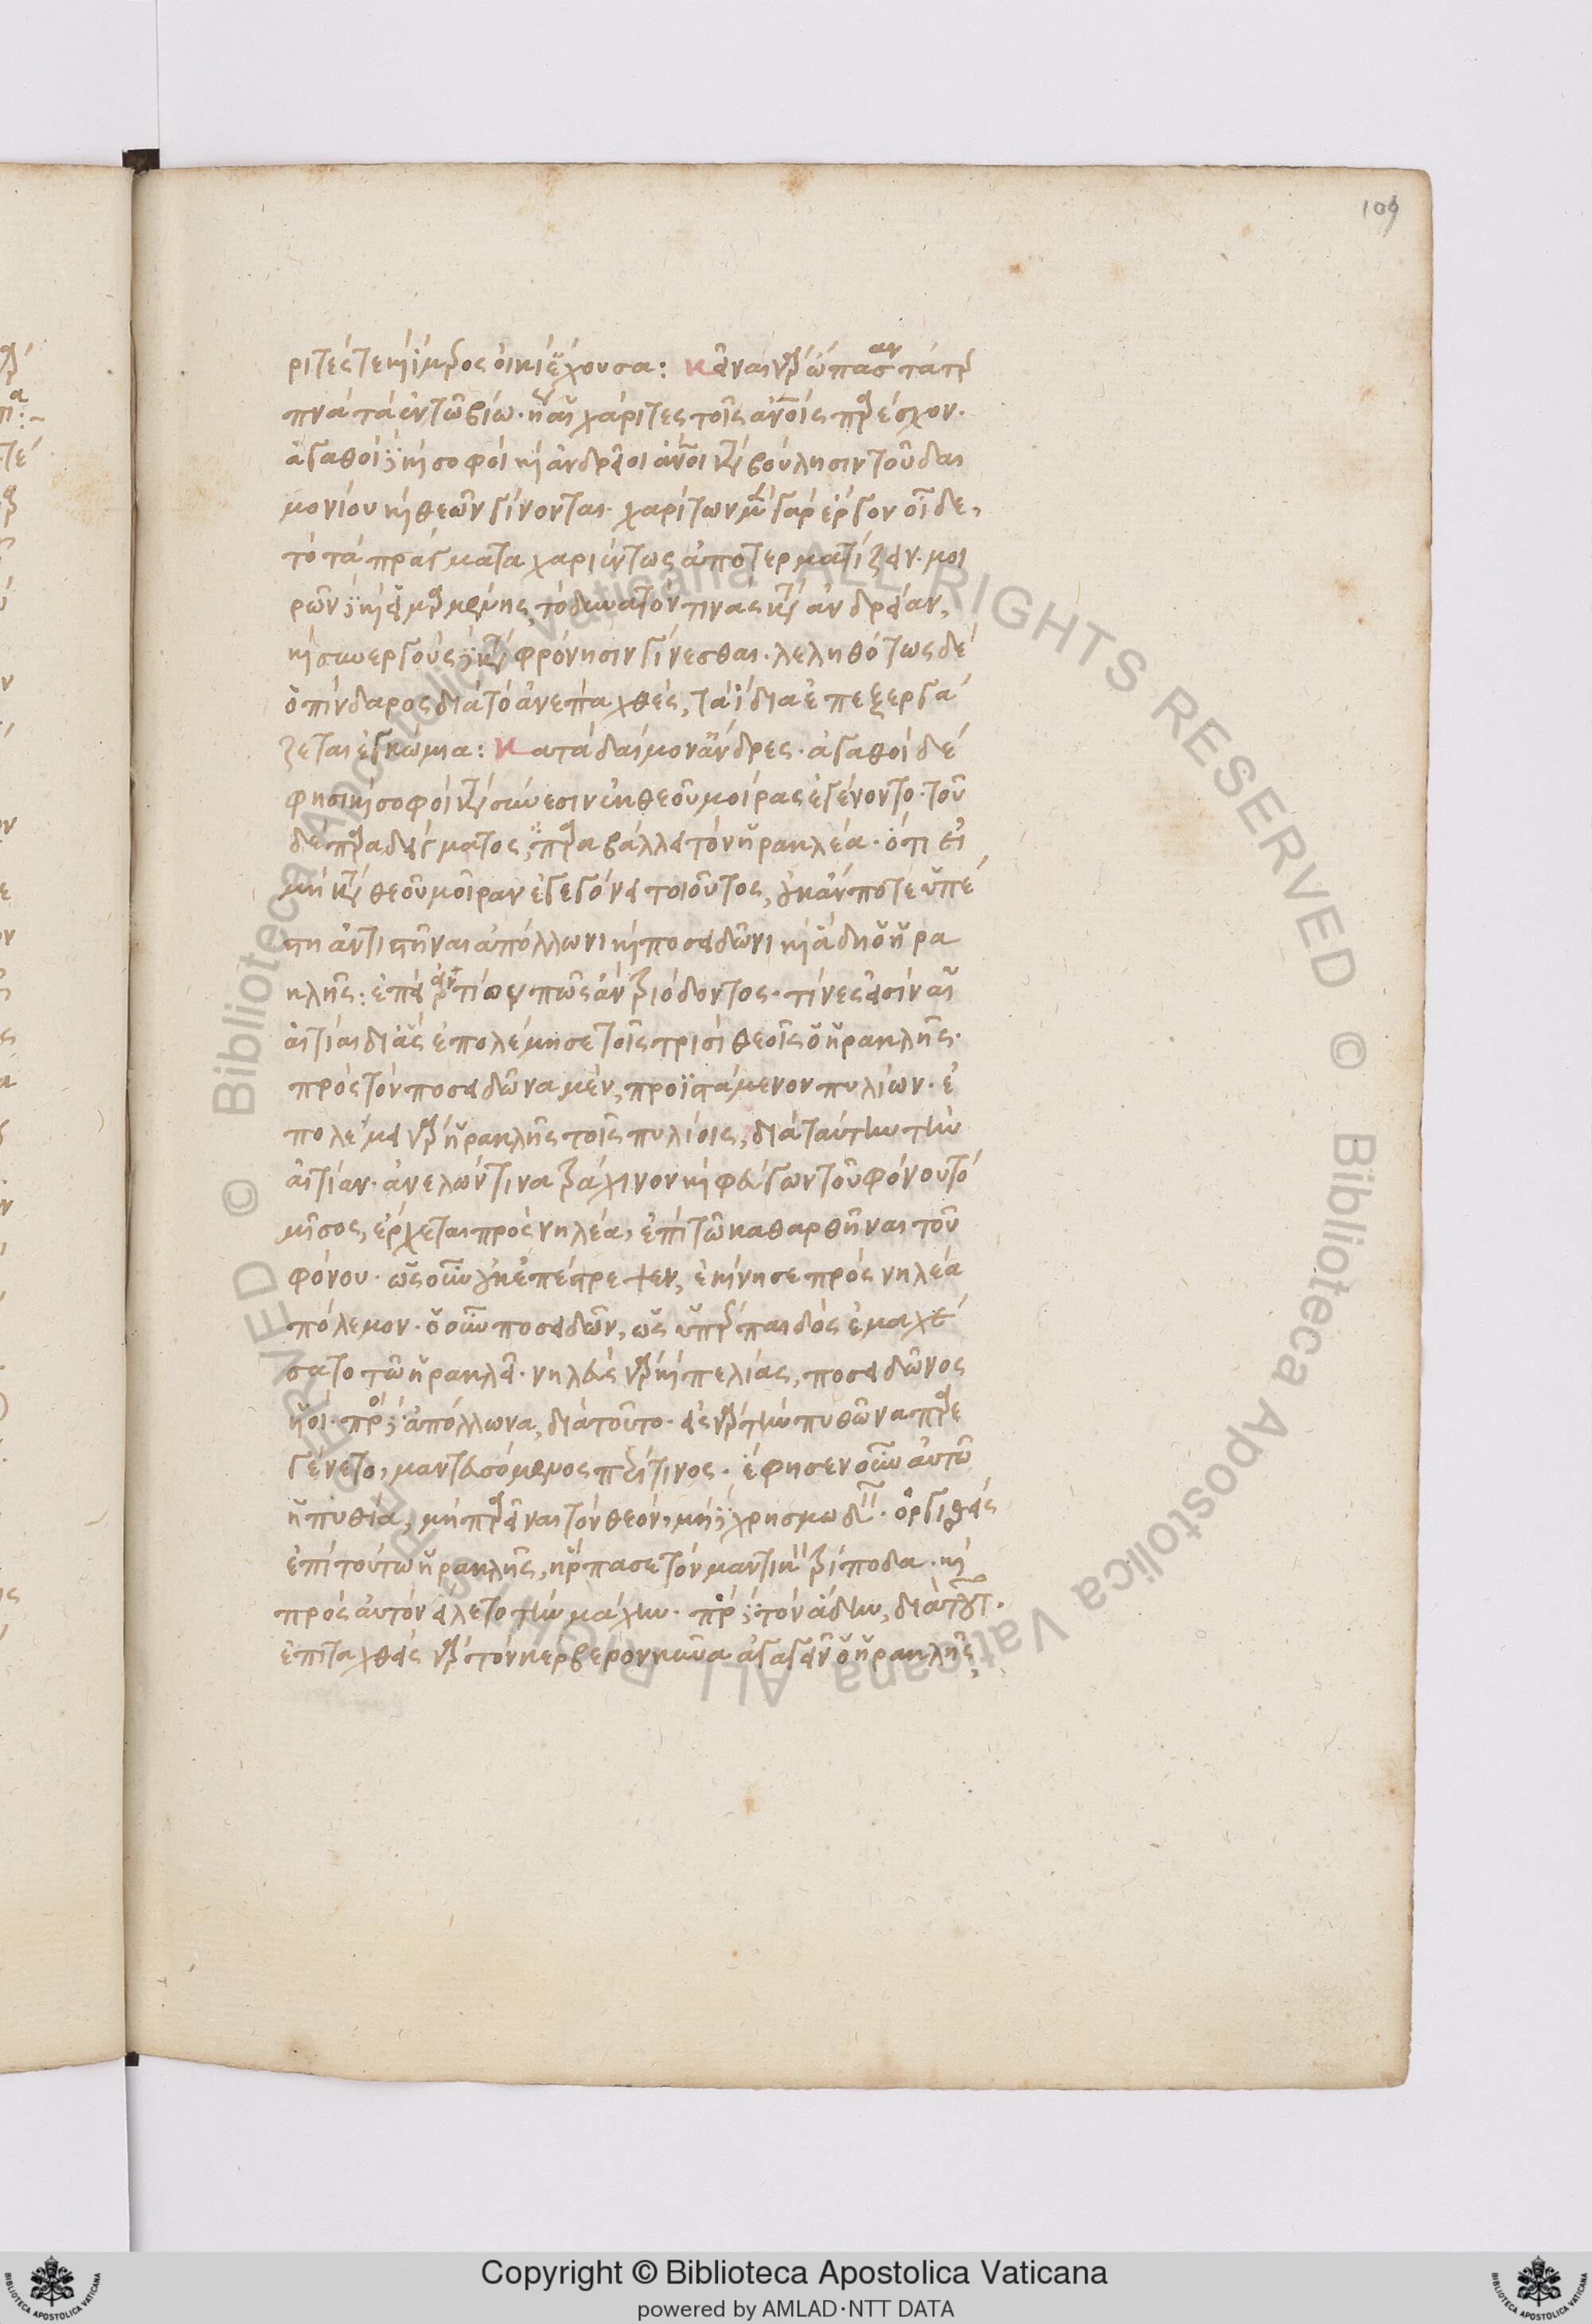 109
ριτές τε καὶ ἵμερος οἰκί' ἔχουσα: κεῖναι γὰρ ὤπασαν τὰ τερ
πνὰ τὰ ἐν τῶ βίω. ἢ αἱ χάριτες τοῖς ἀνοις παρέσχον.
ἀγαθοὶ δὲ καὶ σοφοὶ καὶ ἀνδρεῖοι ἄνοι κατὰ βούλησιν τοῦ δαι
μονίου καὶ θεῶν γίνονται. χαρίτων μὲν γὰρ ἔργον οἶδε,
τὸ τὰ πράγματα χαριέντως ἀποτερματίζειν. μοι
ρῶν δὲ καὶ εἱμαρμένης, τὸ δυνατόν τινας κατ' ἀνδρείαν,
καὶ συνεργοὺς δὲ κατὰ φρόνησιν γίνεσθαι. λεληθότως δὲ
ὁ πίνδαρος διὰ τὸ ἀνεπαχθὲς, τὰ ἴδια ἐπεξεργά
ζεται ἐγκώμια: κατὰ δαίμον' ἄνδρες. ἀγαθοὶ δέ
φησι καὶ σοφοὶ κατὰ σύνεσιν ἐκ θεοῦ μοίρας ἐγένοντο. τοῦ
δὲ παραδείγματος, παραβάλλει τὸν ἡρακλέα. ὅτι εἰ
μὴ κατὰ θεοῦ μοῖραν ἐγεγόνει τοιοῦτος, οὐκ ἄν ποτε ὑπέ
στη ἀντιστῆναι ἀπόλλωνι καὶ ποσειδῶνι καὶ ἅδη ὁ ἡρα
κλῆς: ἐπεὶ ἀντίον πῶς ἂν τριόδοντος. τίνες εἰσὶν αἱ
αἰτίαι δι' ἃς ἐπολέμησε τοῖς τρισὶ θεοῖς ὁ ἡρακλῆς.
πρὸς τὸν ποσειδῶνα μέν, προϊστάμενον πυλίων. ἐ
πολέμει γὰρ ἡρακλῆς τοῖς πυλίοις, διὰ ταύτην τὴν
αἰτίαν. ἀνελών τινα τράχινον καὶ φεύγων τοῦ φόνου τὸ
μῖσος, ἔρχεται πρὸς νηλέα, ἐπὶ τῶ καθαρθῆναι τοῦ
φόνου. ὡς οὖν οὐκ ἐπέτρεψεν, ἐκίνησε πρὸς νηλέα
πόλεμον. ὁ οὖν ποσειδῶν, ὡς ὑπὲρ παιδὸς ἐμαχέ
σατο τῶ ἡρακλεῖ. νηλεὺς γὰρ καὶ πελίας, ποσειδῶνος
υἱοί. πρὸς δὲ ἀπόλλωνα, διὰ τοῦτο. εἰς γὰρ τὴν πυθῶνα παρε
γένετο, μαντευσόμενος περί τινος. ἔφησεν οὖν αὐτῶ
ἡ πυθία, μὴ παρεῖναι τὸν θεόν, μὴ δὲ χρησμωδεῖν. ὀργισθεὶς
ἐπὶ τούτω ἡρακλῆς, ἥρπασε τὸν μαντικὸν τρίποδα. καὶ
πρὸς αὐτὸν εἵλετο τὴν μάχην. πρὸς δὲ τὸν ἅδην, διὰ τοῦτο.
ἐπιταχθεὶς γὰρ τὸν κέρβερον κύνα ἀγαγεῖν ὁ ἡρακλῆς,
Copyright © Biblioteca Apostolica Vaticana
powered by AMLAD·NTT DATA